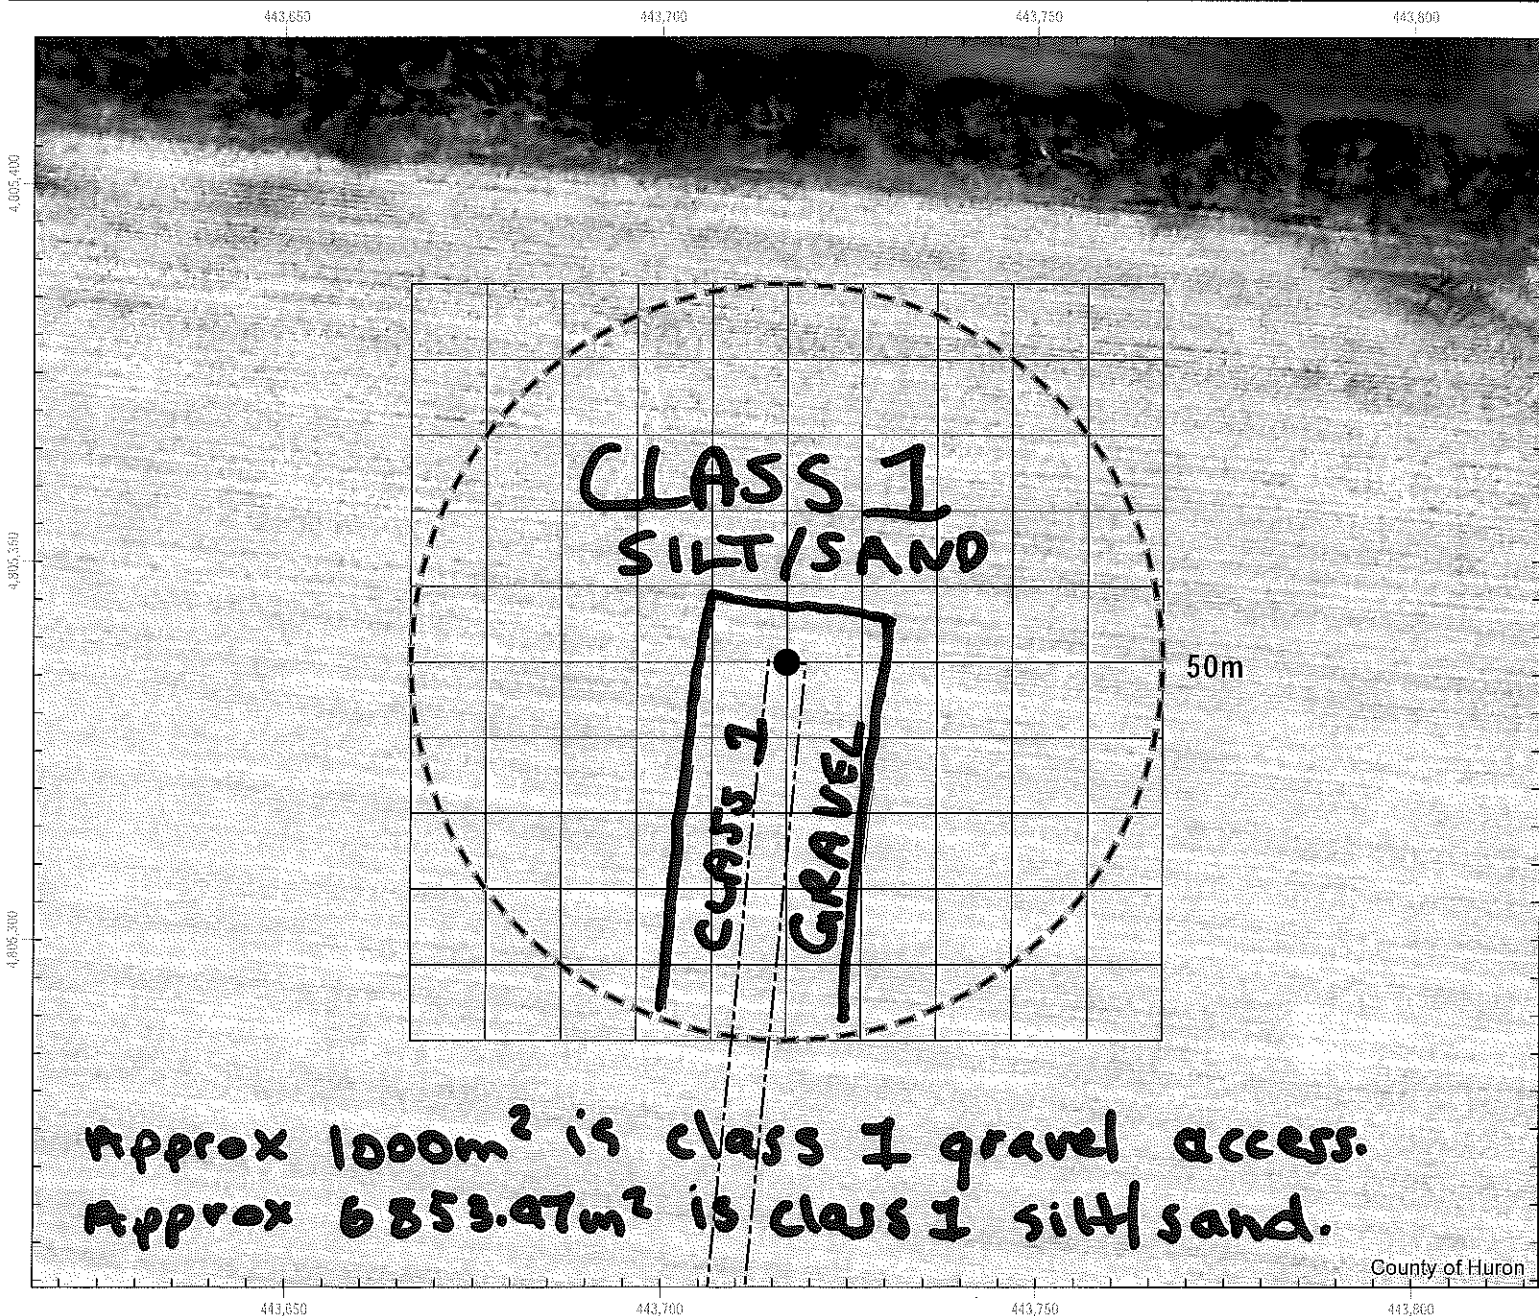 443,650 443,700 443,750 443,800
4,805,400
4,805,350
4,805,300
CLASS 1
SILT/SAND
50m
CLASS 1
GRAVEL
Approx 1000m² is class 1 gravel access.
Approx 6853.97m² is class 1 silt/sand.
County of Huron
443,650 443,700 443,750 443,800